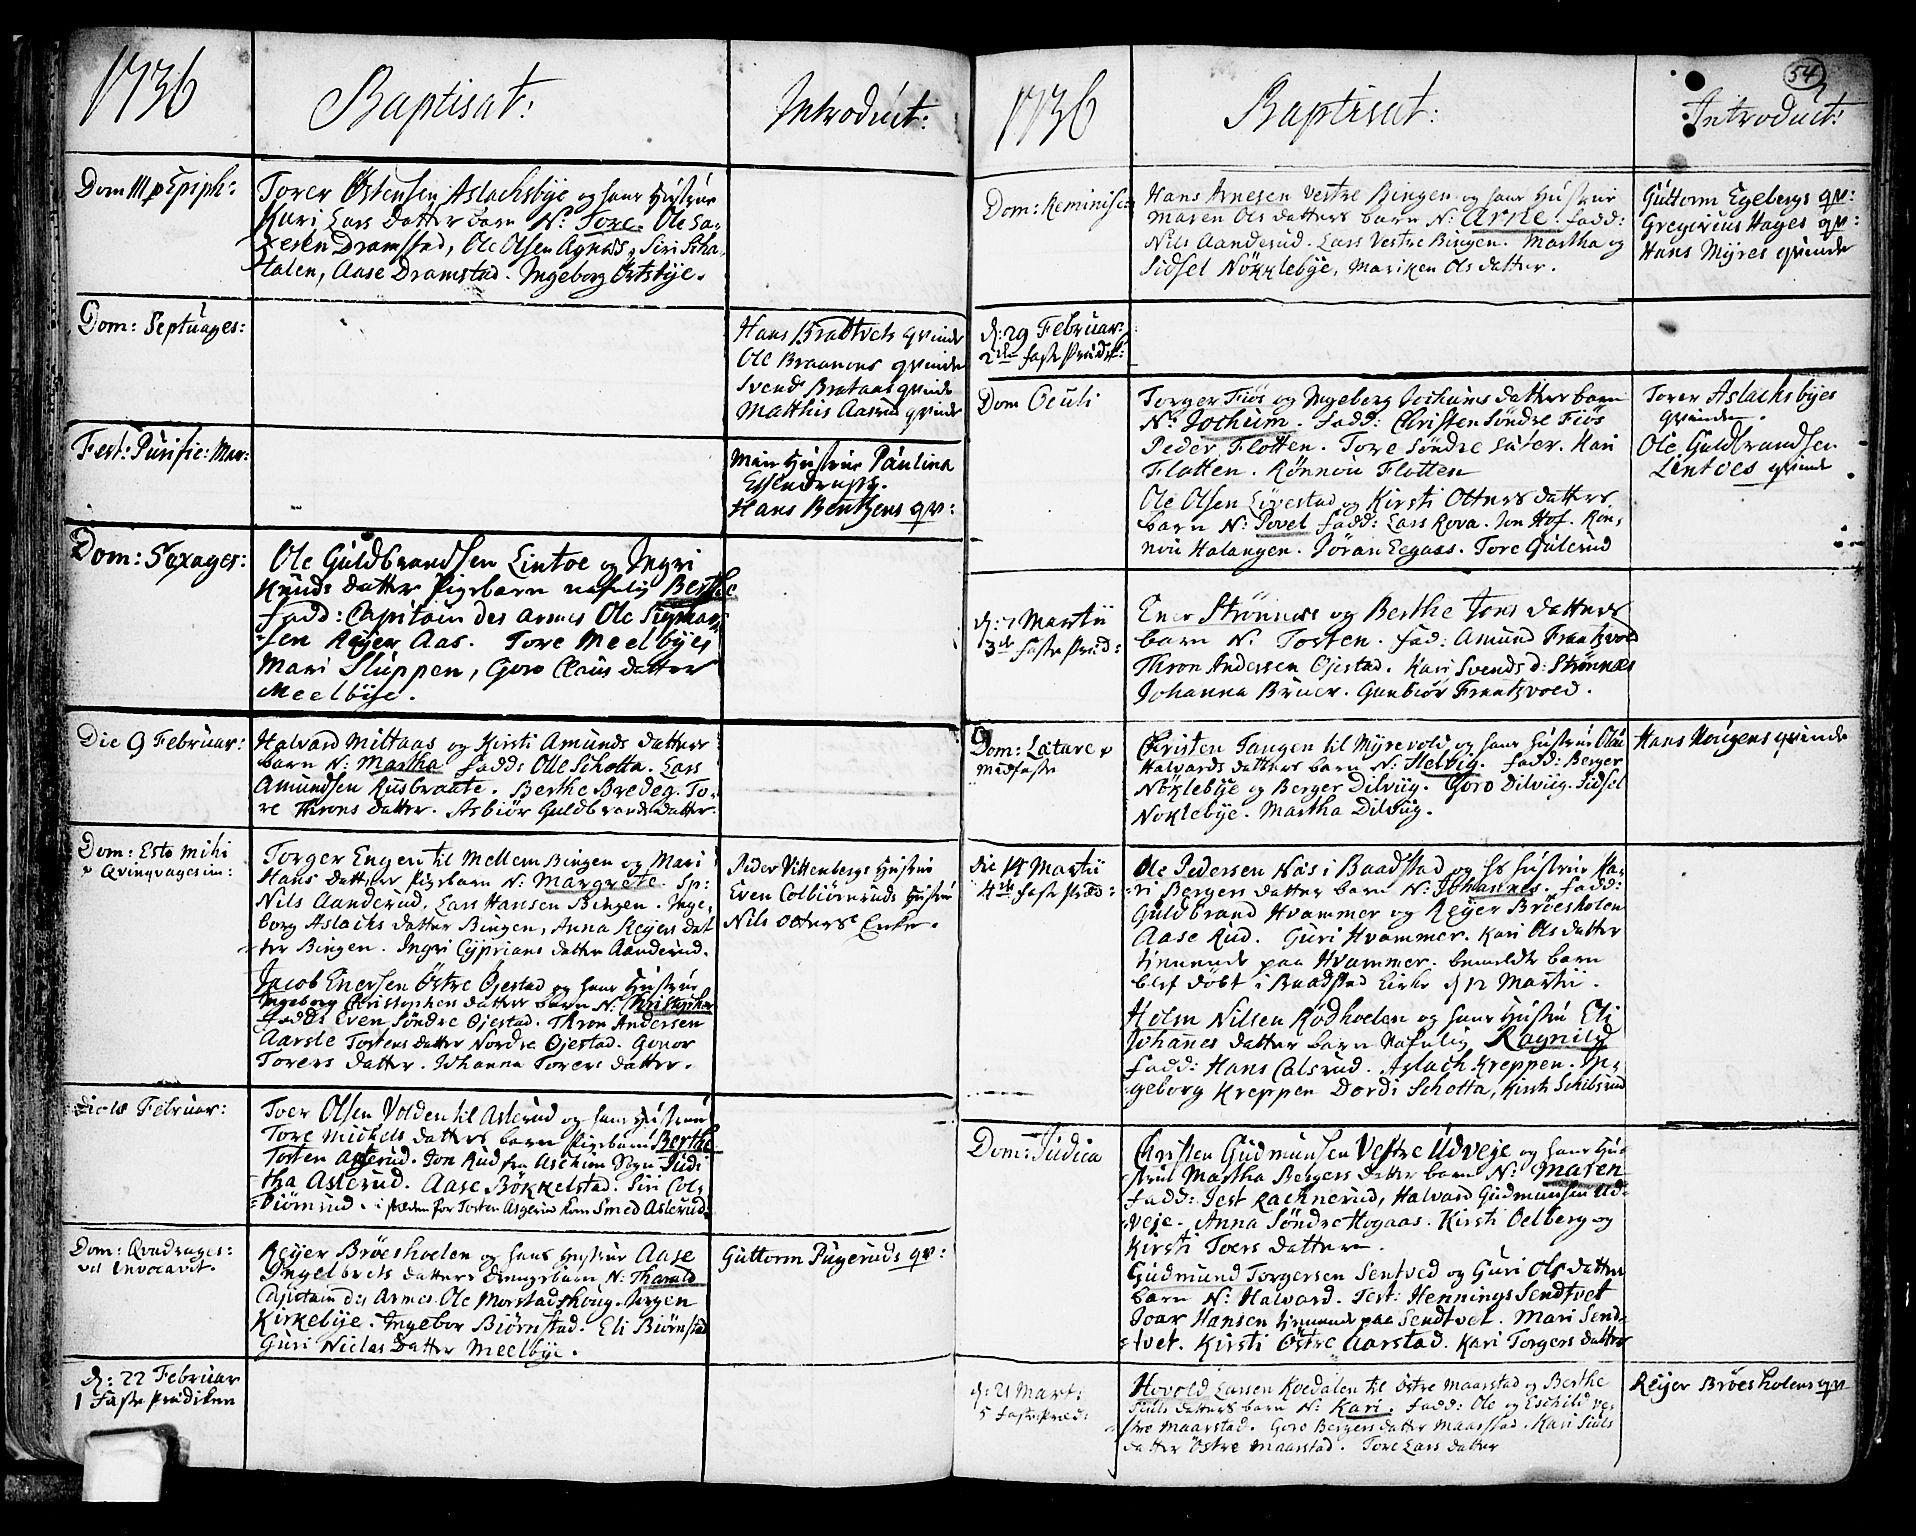 1736
Baptisat:
Introduct:
Dom III p Epiph:
Torer Östensen Aslachsbye og hans Hustrue
Kari Lars datter barn N: Tore. Ole La-
Dramstad, Ole Olsen Agnes, Siri Scha-
Halen, Aase Dramstad. Ingeborg Örtsbye.
Dom: Septuages:
Hans Bradtvets qvinde
Ole Braanons qvinde
Svend Brataas qvinde
Matthis Aaserud qvinde
Fest: Purific: Mar:
Min Hustrue Paulina
Essendrups.
Hans Bentzens qv:
Dom: Sexages:
Ole Guldbrandsen Lintoe og Ingri
Knuds datter Pigebarn nafnlig Berthe
fadd: Capitain des Armes Ole
sen Reyer Aas. Tore Meelbyes
Mari Sluppen, Goro Claus datter
Meelbye.
Die 9 Februar:
Halvard Miltaas og Kirsti Amunds datters
barn N: Martha fadd: Olle Schotta. Lars
Amundsen Rusbraate. Berthe Bredeg. To-
re Throns datter. Asbiør Guldbrands datter.
Dom: Esto mihi
v Qvinqvagesim:
Torger Engen til Mellem Bingen og Mari
Hans datter Pigebarn N: Margrete Sp:
Nils Aanderud, Lars Hansen Bingen. Inge-
borg Aslachs datter Bingen, Anna Reyers dat
ter Bingen. Ingri Cyprians datter Aanderud.
Peder Vittenbergs Hustrue
Even Colbiörnruds Hustrue
Nils Otters Enke.
Jacob Enersen Östre Öjestad og hans Hustrue
Ingeborg Christophers datters barn N: Christopher
fadd: Even Söndre Öjestad. Thron Andersen
Aarsle Tostens datter Nordre Öjestad. Gonor
Torers datter. Johanna Torers datter.
Februar:
Toer Olsen Volden til Asterud og hans Hustrues
Tore Michels datters barn Pigebarn Berthe
Tosten Asgerud. Jon Rud fra Aschim Sogn Judi
tha Asterud. Aase Bökkelstad. Siri Col-
biörnrud. i stæden for Tosten Asgerud kom Smed Asterud.
Dom: Qvadrages:
vel Invocavit.
Reyer Bröesholen og hans Hustrue Aase
Ingelbrets datters drengebarn N: Tharald
Capitain des Armes Ole Morstadshoug. Jörgen
Kirkebye. Ingebor Biörnstad. Eli Biörnstad
Guri Niclas datter Meelbye.
Guttorm Pugeruds qv:
d: 22 Februar
1 Faste Prædiken
1736
Baptisat:
54
Introduct:
Dom: Reminisc:
Hans Arnesen Vestre Bingen og hans Hustrue
Maren Ols datters barn N: Arne. fadd:
Nils Aanderud. Lars Vestre Bingen. Martha og
Sidsel Nökklebye, Mariken Ols datter.
Guttorm Egebergs qv:
Gregirius Hages qv:
Hans Myres qvinde
d: 29 Februar:
2den faste Prædik:
Dom Oculi
Torger Fiös og Ingeborg Jochums datters barn
N: Jochum. fadd: Christen Söndre Fiös
Peder Flotten. Tore Söndre Sater. Kari
Flotten. Rönnou Flotten
Torer Aslachsbyes
qvinde.
Ole Guldbrandsen
Lintoes qvinde
Ole Olsen Eivestad og Kirsti Otters datters
barn N: Povel fadd: Lars Rova. Jon Hof. Rön-
nou Halangen. Jöran Eegaas. Tore Gulerud
d: 7 Martii
3de faste Præd:
Ener Strönnes og Berthe Jons datters
barn N: Tosten. fad: Amund Frantzvold
Thron Andersen Öjestad. Kari Svends d: Strönnes
Johanna Bruer. Gunbiör Frantzvold.
Dom: Lætare v
Midfaste
Christen Tangen til Myrevold og hans Hustrue Olau
Halvards datters barn N: Helvig. fadd: Berger
Nöklebye og Berger Dilviig. Goro Dilviig. Sidsel
Noklebye. Martha Dilviig.
Hans Hougens qvinde
die 14 Martii
4de faste Præd:
Ole Pedersen Näs i Baadstad og hs Hustrue Ka-
ri Bergers datter barn N: Johannes. fadd:
Guldbrand Hvammer og Reyer Bröesholen
Aase Rud. Guri Hvammer. Kari Ols datter
tienende paa Hvammer. bemeldte barn
blef döbt i Baadstad Kirke d 12 Martii.
Holm Nilsen Rödholen og hans Hustru Eli
Johanes datter barn Nafnlig Ragnild
fadd: Hans Calsrud. Aslach Kreppen. In-
geborg Kreppen Dordi Schotta, Kirsti Schibsrud
Dom: Judica
Christen Gudmunsen Vestre Udveje og hans Hu-
strue Martha Bergers datter barn N: Maren
fadd: Jest Rachnerud, Halvard Gudmunsen Ud-
veje. Anna Söndre Hogaas. Kirsti Oelberg og
Kirsti Toers datter.
Gudmund Torgersen Sentved og Guri Ols datter
barn N: Halvard. Test: Hennings Sendtvet
Joar Hansen tienende paa Sendtvet. Mari Send-
tvet. Kirsti Östre Aarstad. Kari Torgers datter
d: 21 Mart:
5 faste Præd:
Hovold Larsen Koedalen til Östre Maarstad og Berthe
Siuls datters barn N: Kari. fadd: Ole og Eschild ve-
stre Maarstad. Goro Bergers datter Maarstad. Kari Siuls
datter Östre Maarstad. Tore Lars datter
Reyer Bröesholens qv